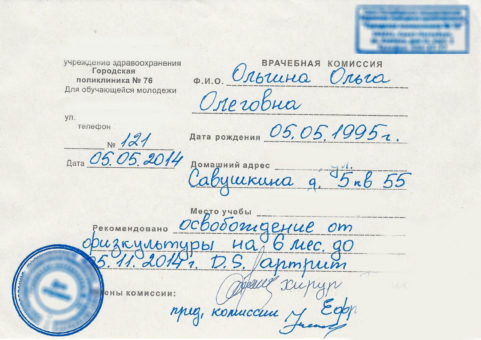 учреждение здравоохранения
Городская
поликлиника № 76
Для обучающейся молодежи
ул.
телефон
№ 121
Дата 05.05.2014
ВРАЧЕБНАЯ КОМИССИЯ
Ф.И.О. Ольгина Ольга
Олеговна
Дата рождения 05.05.1995г.
Домашний адрес ул.
Савушкина д. 5 кв 55
Место учебы
Рекомендовано освобождение от
физкультуры на 6 мес. до
05.11.2014г. D.S. артрит
хирург
члены комиссии:
пред. комиссии